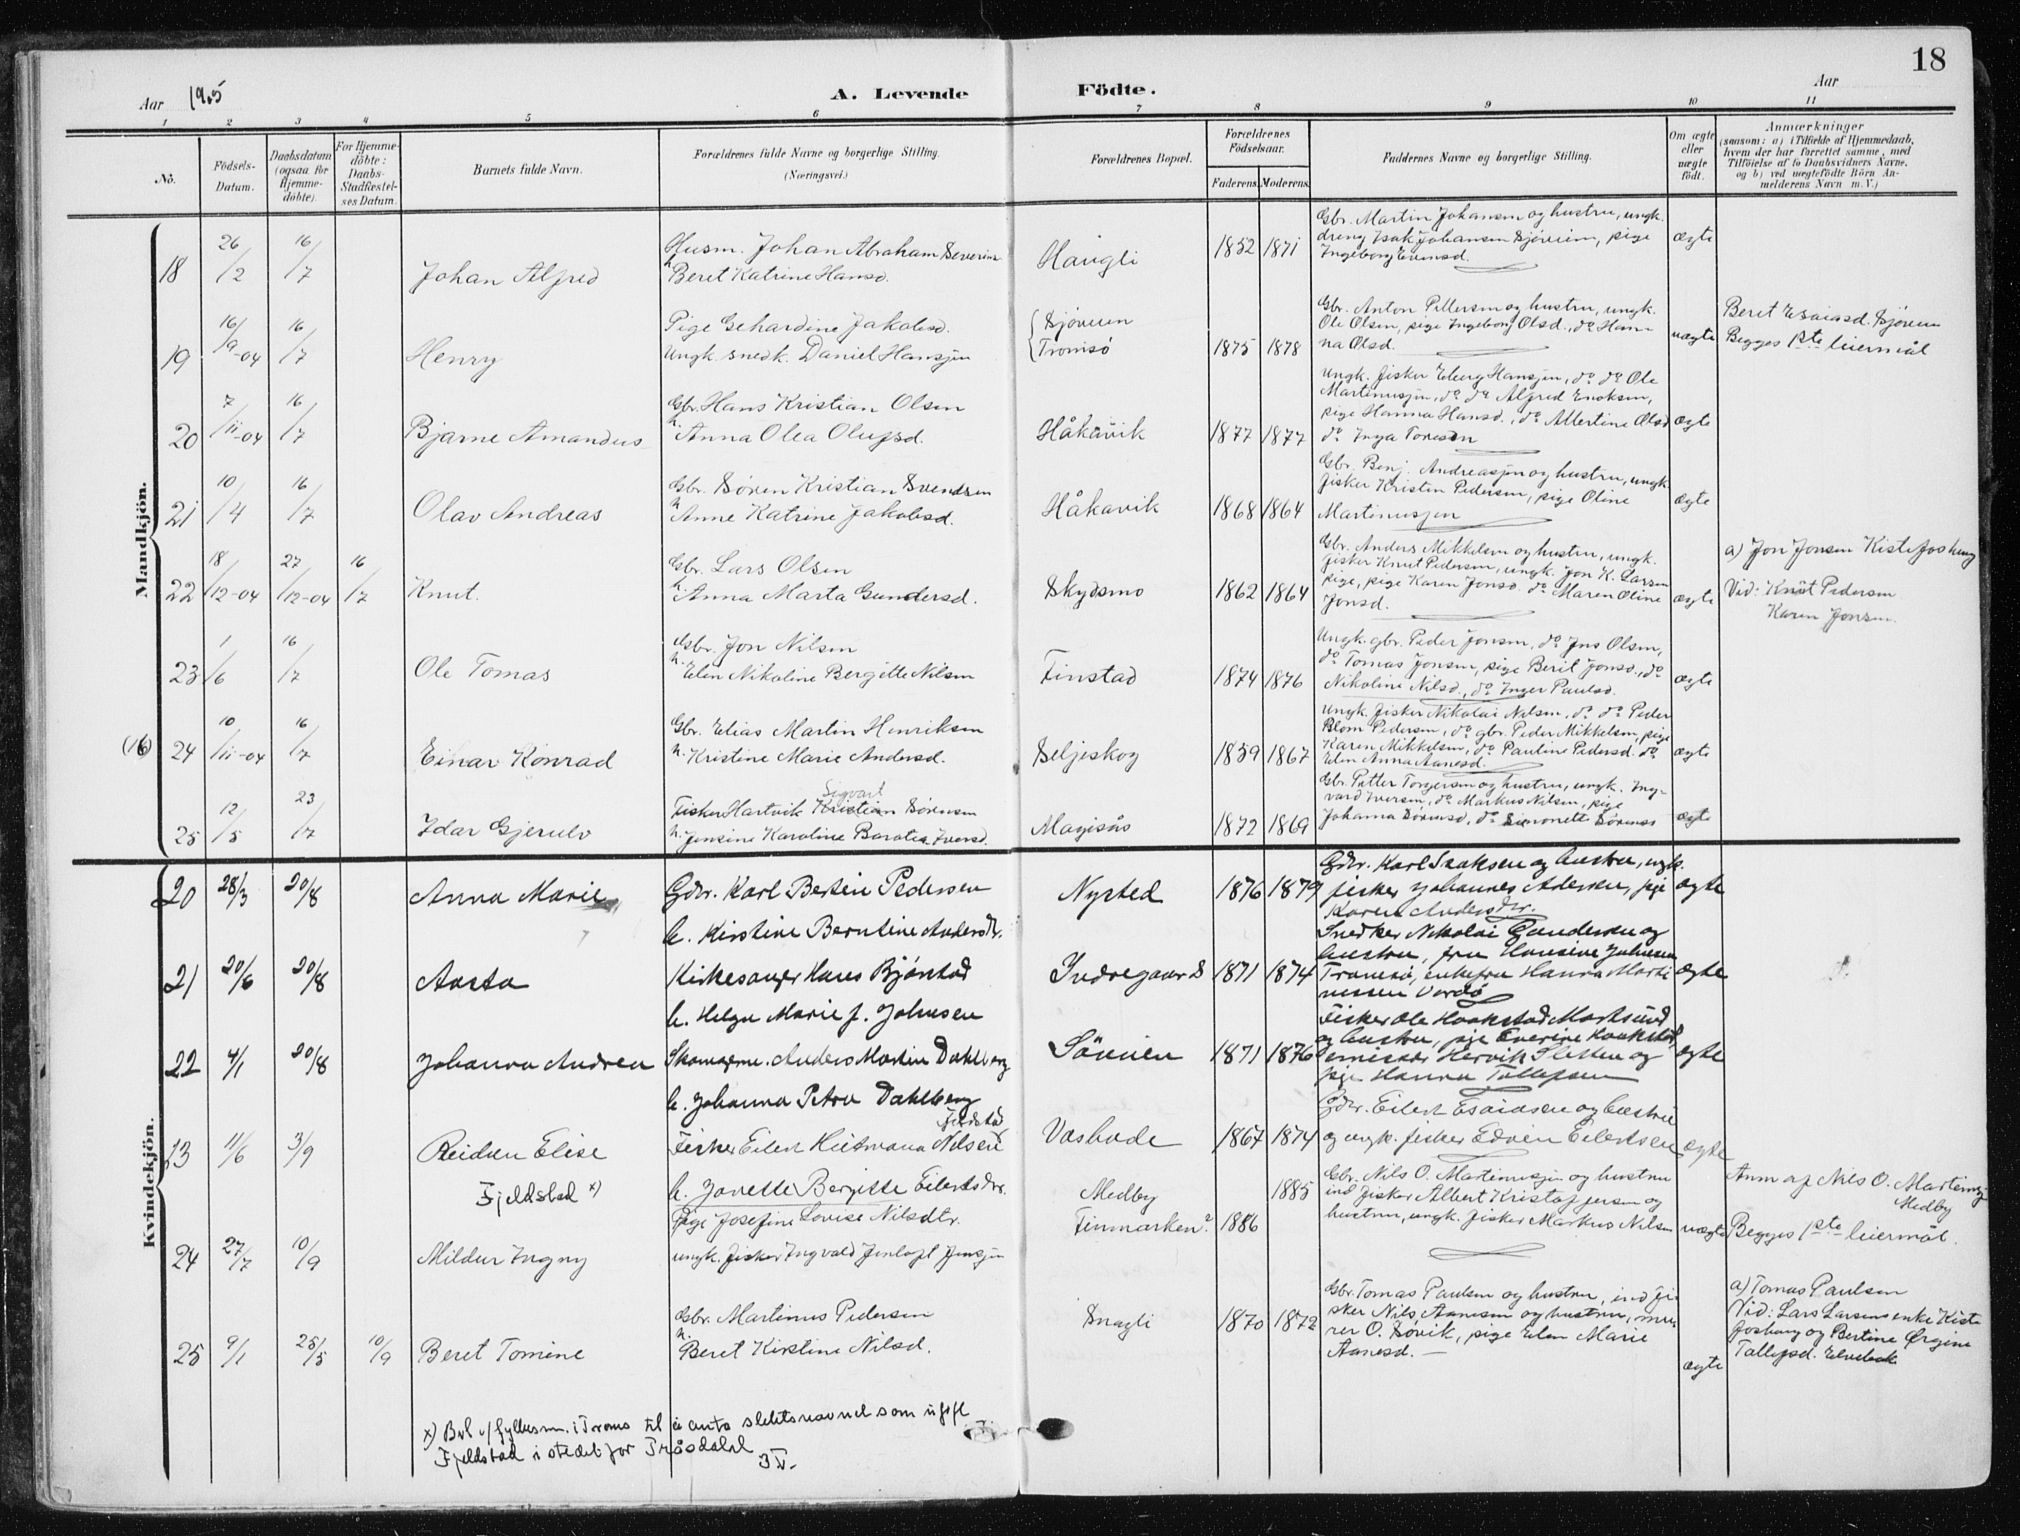 18
Aar 1905
A. Levende Födte.
Aar
1 2 3 4 5 6 7 8 9 10 11
No.
Födsels-Datum.
Daabsdatum (ogsaa for Hjemme-döbte).
For Hjemme-döbte: Daabs-Stadfæstel-ses Datum.
Barnets fulde Navn.
Forældrenes fulde Navne og borgerlige Stilling.
(Næringsvei.)
Forældrenes Bopæl.
Forældrenes Födselsaar.
Faderens. Moderens.
Faddernes Navne og borgerlige Stilling.
Om ægte eller uægte födt.
Anmærkninger
(saasom: a) i Tilfælde af Hjemmedaab,
hvem der har forrettet samme, med
Tilföielse af to Daabsvidners Navne,
og b) ved uægtefödte Börn An-
melderens Navn m. V.)
Mandkjön.
18 26/2 16/7 Johan Alfred
Husm. Johan Abraham Severin
h. Beret Katrine Hansd.
Haugli 1852 1871
Gbr. Martin Johansen og hustru, ungk.
dreng Isak Johansen Sjøveien, pige
Ingeborg Evensd.
ægte
19 16/9-04 16/7 Henry
Pige Gehardine Jakobsd.
Ungk. snedk. Daniel Hansjen
Sjøveien
Tromsø
1875 1878
Gbr. Anton Pettersen og hustru, ungk.
Ole Olsen, pige Ingeborg Olsd., do Han-
na Olsd.
uægte
Beret Esaiasd. Sjøveien
Begges 1ste leiermål
20 7/11-04 16/7 Bjarne Amandus
Gbr. Hans Kristian Olsen
h. Anna Olea Olufsd.
Håkavik 1877 1877
Ungk. fisker Eberg Hansjen, do do Ole
Martinusjen, do do Alfred Enoksen,
pige Hanna Hansd., do Albertine Olsd
do Inga Toresen
ægte
21 10/4 16/7 Olav Andreas
Gbr. Sören Kristian Svendsen
h. Anne Katrine Jakobsd.
Håkavik 1868 1864
Gbr. Benj. Andreasjen og hustru, ungk.
fisker Kristen Pedersen, pige Oline
Martinusjen
ægte
22 18/12-04 27/12-04 16/7 Knut.
Gbr. Lars Olsen
h. Anna Marta Gundersd.
Skydsmo 1862 1864
Gbr. Anders Mikkelsen og hustru, ungk.
fisker Knut Pedersen, ungk. Jon K. Larsen
pige, pige Karen Jonsd. do Maren Oline
Jonsd.
ægte
a) Jon Jonsen Kistefoshaug
Vid: Knut Pedersen
Karen Jonsen.
23 1/6 16/7 Ole Tomas
Gbr. Jon Nilsen
h. Elen Nikoline Bergitte Nilsen
Finstad 1874 1876
Ungk. gbr. Peder Jonsen, do Jns Olsen,
do Tomas Jonsen, pige Berit Jonsd., do
Nikoline Nilsd., do Inger Paulsd.
ægte
(16) 24 10/11-04 16/7 Einar Konrad
Gbr. Elias Martin Henriksen
h. Kristine Marie Andersd.
Seljeskog 1859 1867
Ungk. fisker Nikolai Nilsen, do do Peder
Blom Pedersen, do gbr. Peder Mikkelsen, pige
Karen Mikkelsen, do Pauline Pedersd. do
Elen Anna Aanesd.
ægte
25 12/5 23/7 Idar Gjerulv
Sigvart
Fisker Hartvik Kristian Sörensen
h. Jensine Karoline Baratea Iversd.
Magisås 1872 1869
Gbr. Petter Torgersen og hustru, ungk. Ing-
vard Iversen, do Markus Nilsen, pige
Johanna Sörensd, do Simonette Sörensd
ægte
Kvindekjön.
20 28/3 20/8 Anna Marie
Gdbr. Karl Bertin Pedersen
h. Kirstine Berntine Andersdr.
Nysted 1876 1879
Gdbr. Karl Isaksen og hustru, ungk.
fisker Johannes Andersen, pige
Karen Andersdtr.
ægte
21 20/6 20/8 Aasta
Kirkesanger Hans Bjørstad
h. Helga Marie f. Johnsen
Indregaard 1871 1874
Snedker Nikolai Gundersen og
hustru, fru Hansine Johnsen
Tromsø, enkefru Hanna Marti
nessen Vardø
ægte
22 4/1 20/8 Johanna Andrea
Skomagerm. Anders Martin Dahlberg
h. Johanna Petra Dahlberg
Söveien 1871 1876
Fisker Ole Haakstad Mortsund
og hustru, pige Everine Haakstad
emissær Hervik Sletten og
pige Hanna Tollefsen
ægte
23 11/6 3/9 Reidun Elise
Fjeldstad x)
Fjeldstad
Fisker Eilert Hietmann Nilsen
h. Janette Bergitte Eilertsdr.
Vasbode 1867 1874
Gdbr. Eilert Esaiasen og hustru
og ungk. fisker Edvin Eilertsen
ægte
24 27/7 10/9 Mildur Ingny
Pige Josefine Lovise Nilsdtr.
ungk. fisker Ingvald Jenloft Jensjen
Medby
Finmarken?
1885
1886
Gbr. Nils O. Martinusjen og hustru
ind. fisker Albert Kristoffersen og
hustru, ungk. fisker Markus Nilsen
uægte
Anm af Nils O. Martinusj
Medby
Begges 1ste leiermål.
25 9/1 25/5 10/9 Beret Tomine
Gbr. Martinus Pedersen
h. Beret Kirstine Nilsd.
Snagli 1870 1872
Gbr. Tomas Paulsen og hustru, ind. fi-
sker Nils Aanesen og hustru, mu-
rer O. Sovik, pige Elen Marie
Aanesd. —
ægte
a) Tomas Paulsen
Vid: Lars Larsens enke Kiste
foshaug og Bertine Ørgine
Tollefsd. Elvebak
x) Bev. v/ fylkesm. i Troms til å anta slektsnavnet som
Fjeldstad i stedet for Tråsdahl